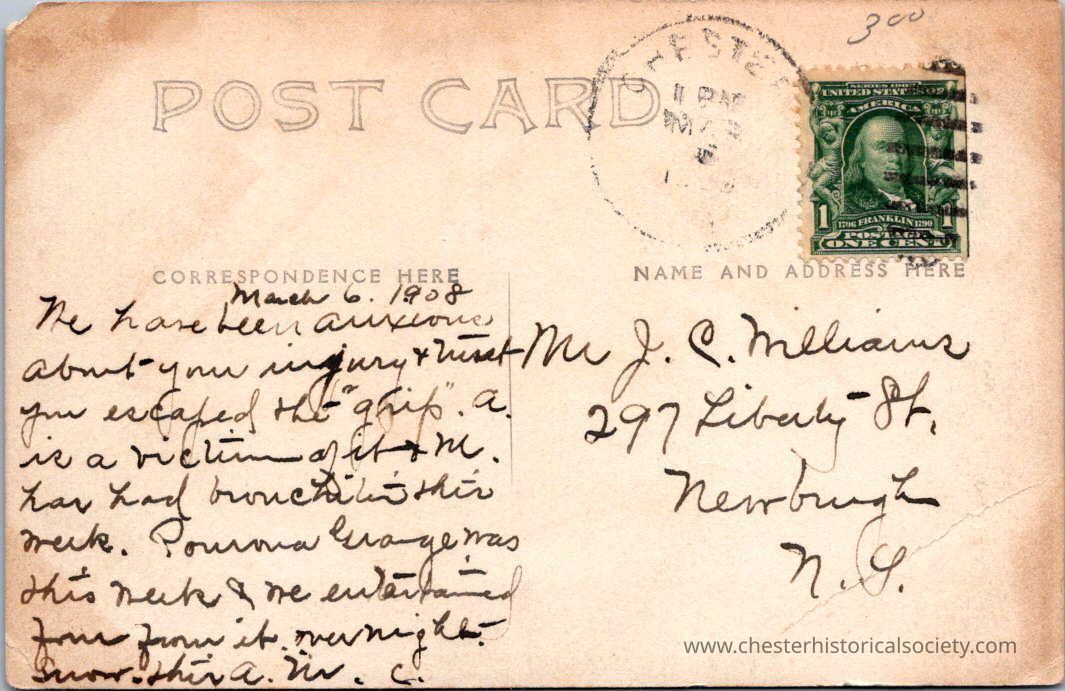 300
POST CARD
CHESTER
1 PM
MAR
SERIES 1902
UNITED STATES OF
AMERICA
1706 FRANKLIN 1790
1 1
POSTAGE
ONE CENT
CORRESPONDENCE HERE
NAME AND ADDRESS HERE
March 6. 1908
We have been anxious
about your injury & trust
you escaped the "grip". A.
is a victim of it & M.
has had bronchitis this
week. Pomona Grange was
this week & we entertained
four from it over night.
Snow this A.M. C.
Mr J. C. Williams
297 Liberty St.
Newburgh
N. Y.
www.chesterhistoricalsociety.com